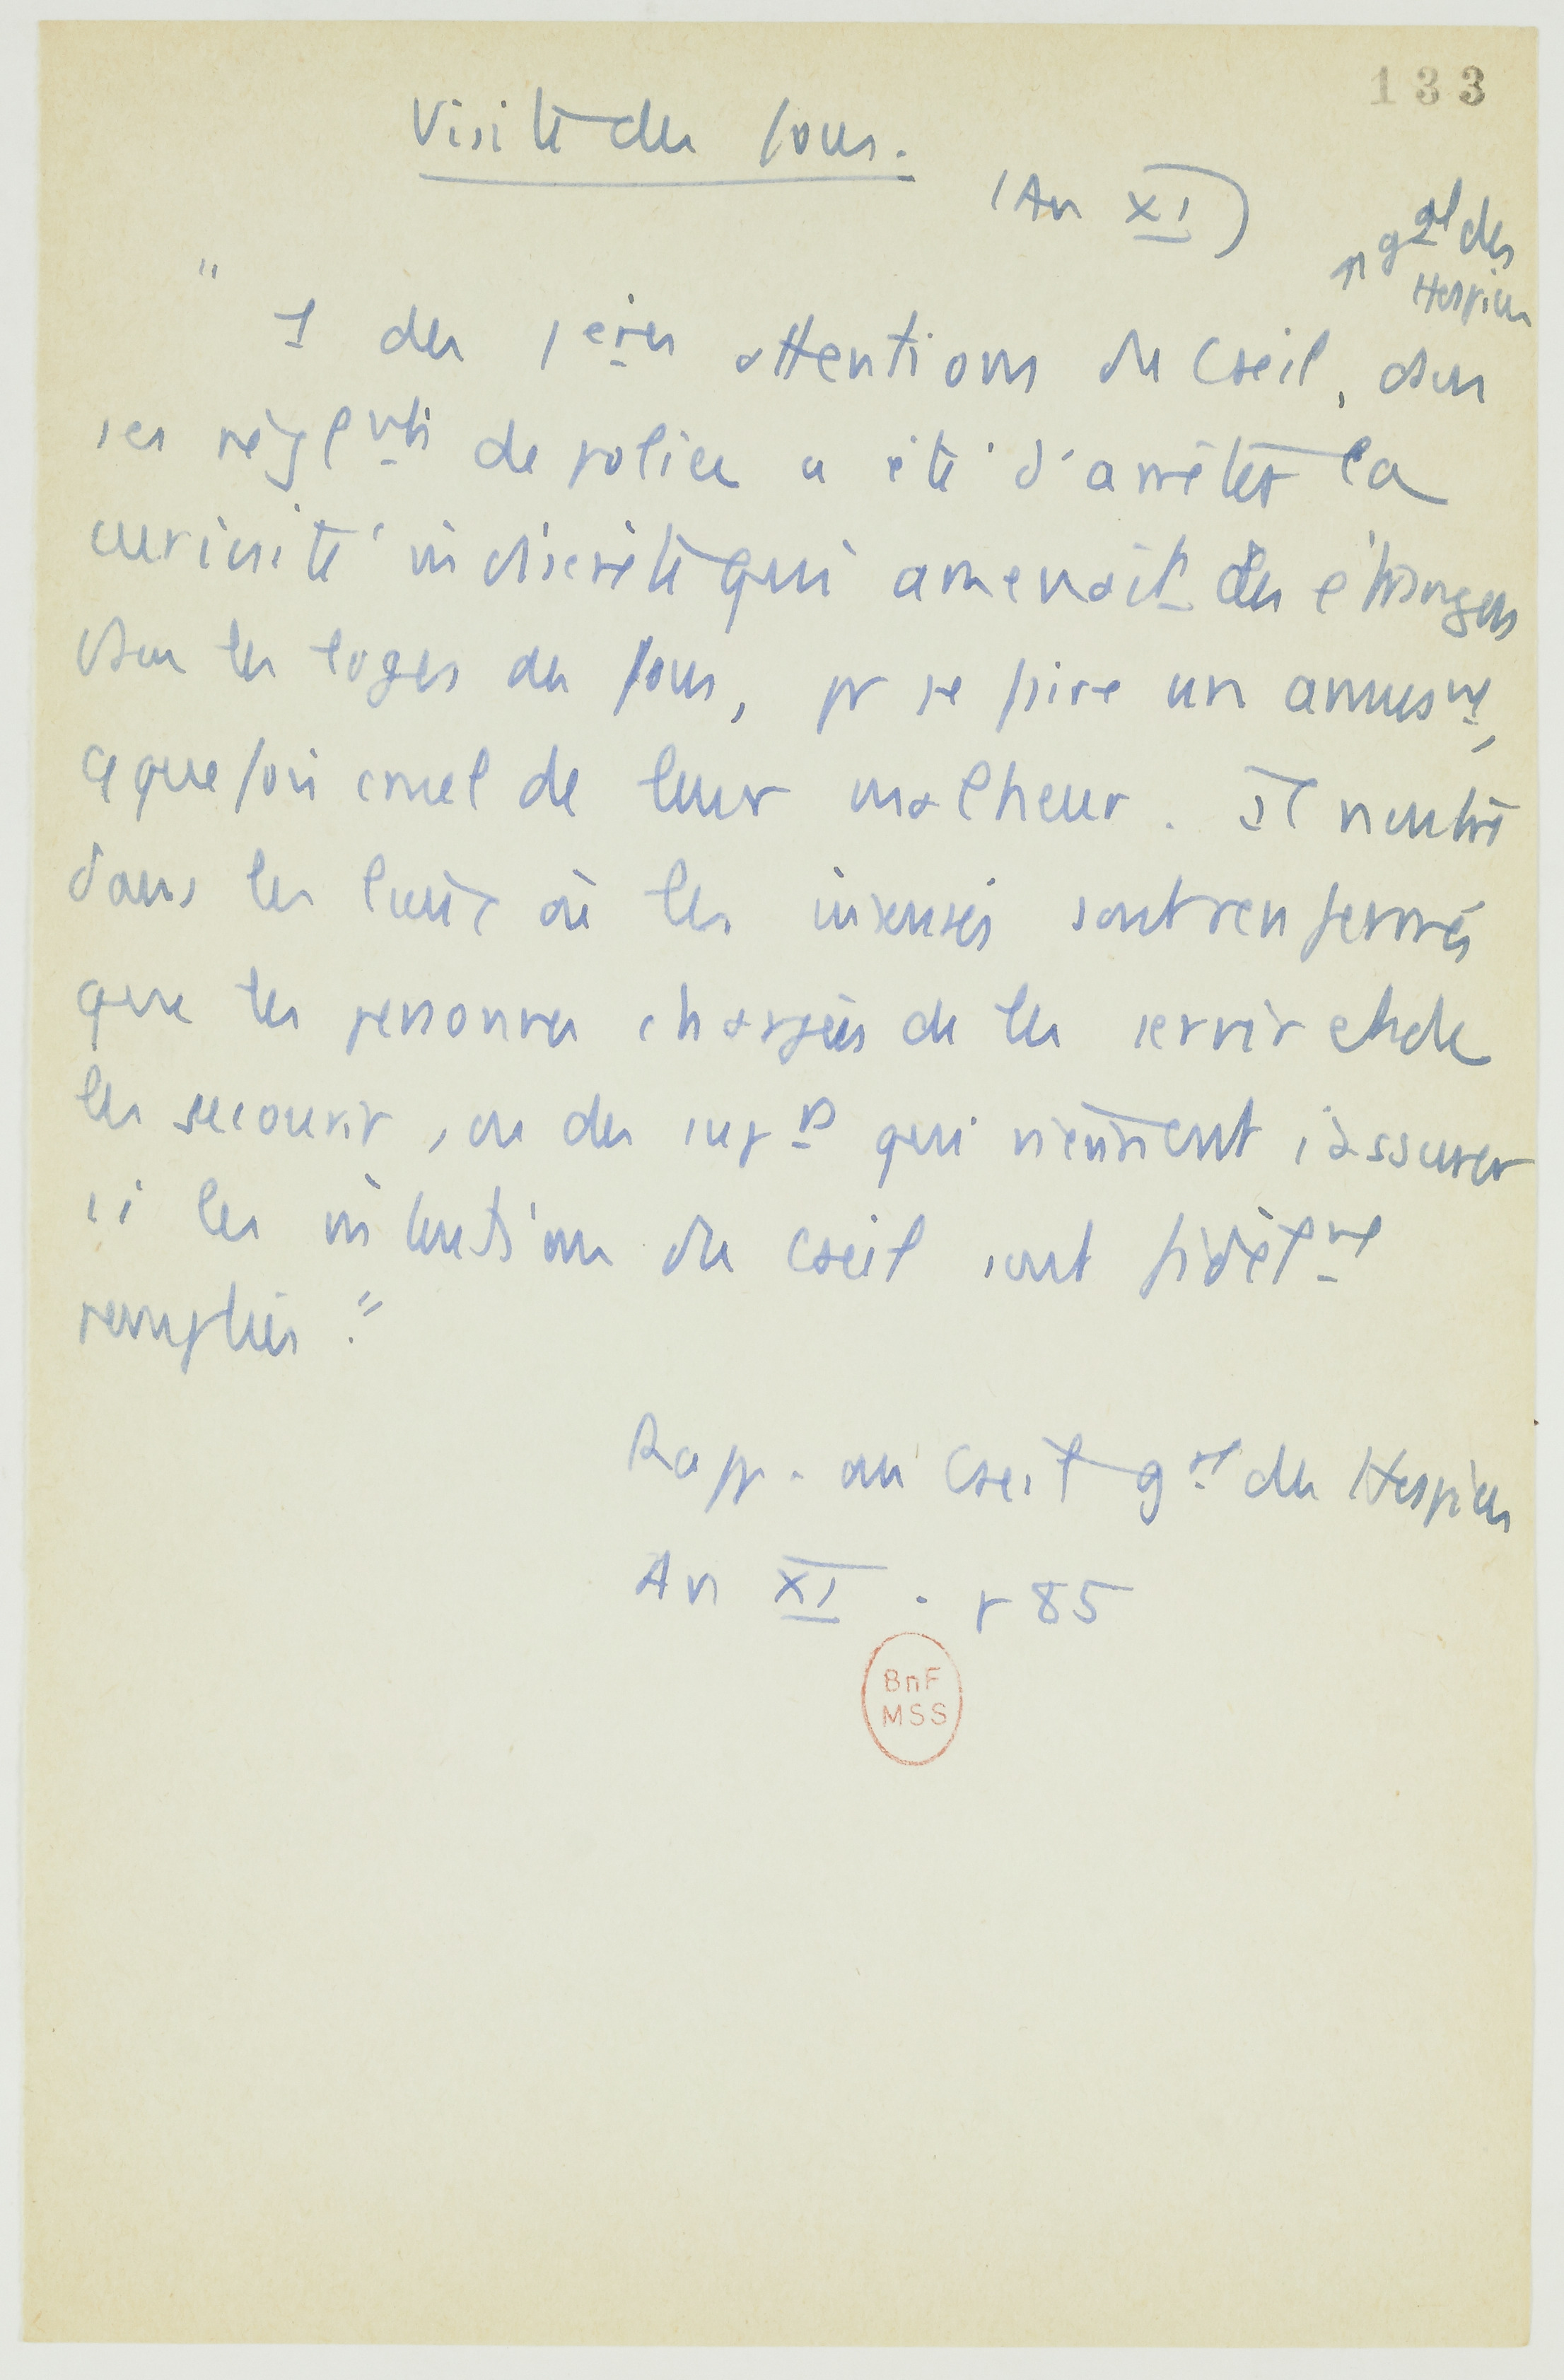 133
Visite des fous.
(An XI)
gal des
Hospices
" 1 des 1ères attentions du Cseil, dans
ses règlmts de police a été d'arrêter la
curiosité indiscrète qui amenait des étrangers
dans les loges des fous, pr se faire un amusmt,
qquefois cruel de leur malheur. Il n'entre
dans les lieux où les insensés sont renfermés
que les personnes chargées de les servir et de
les secourir, ou des supr qui viennent s'assurer
si les intentions du Cseil sont fidèlmt
remplies."
Rapp. au Cseil gal des Hospices
An XI. p 85
BnF
MSS